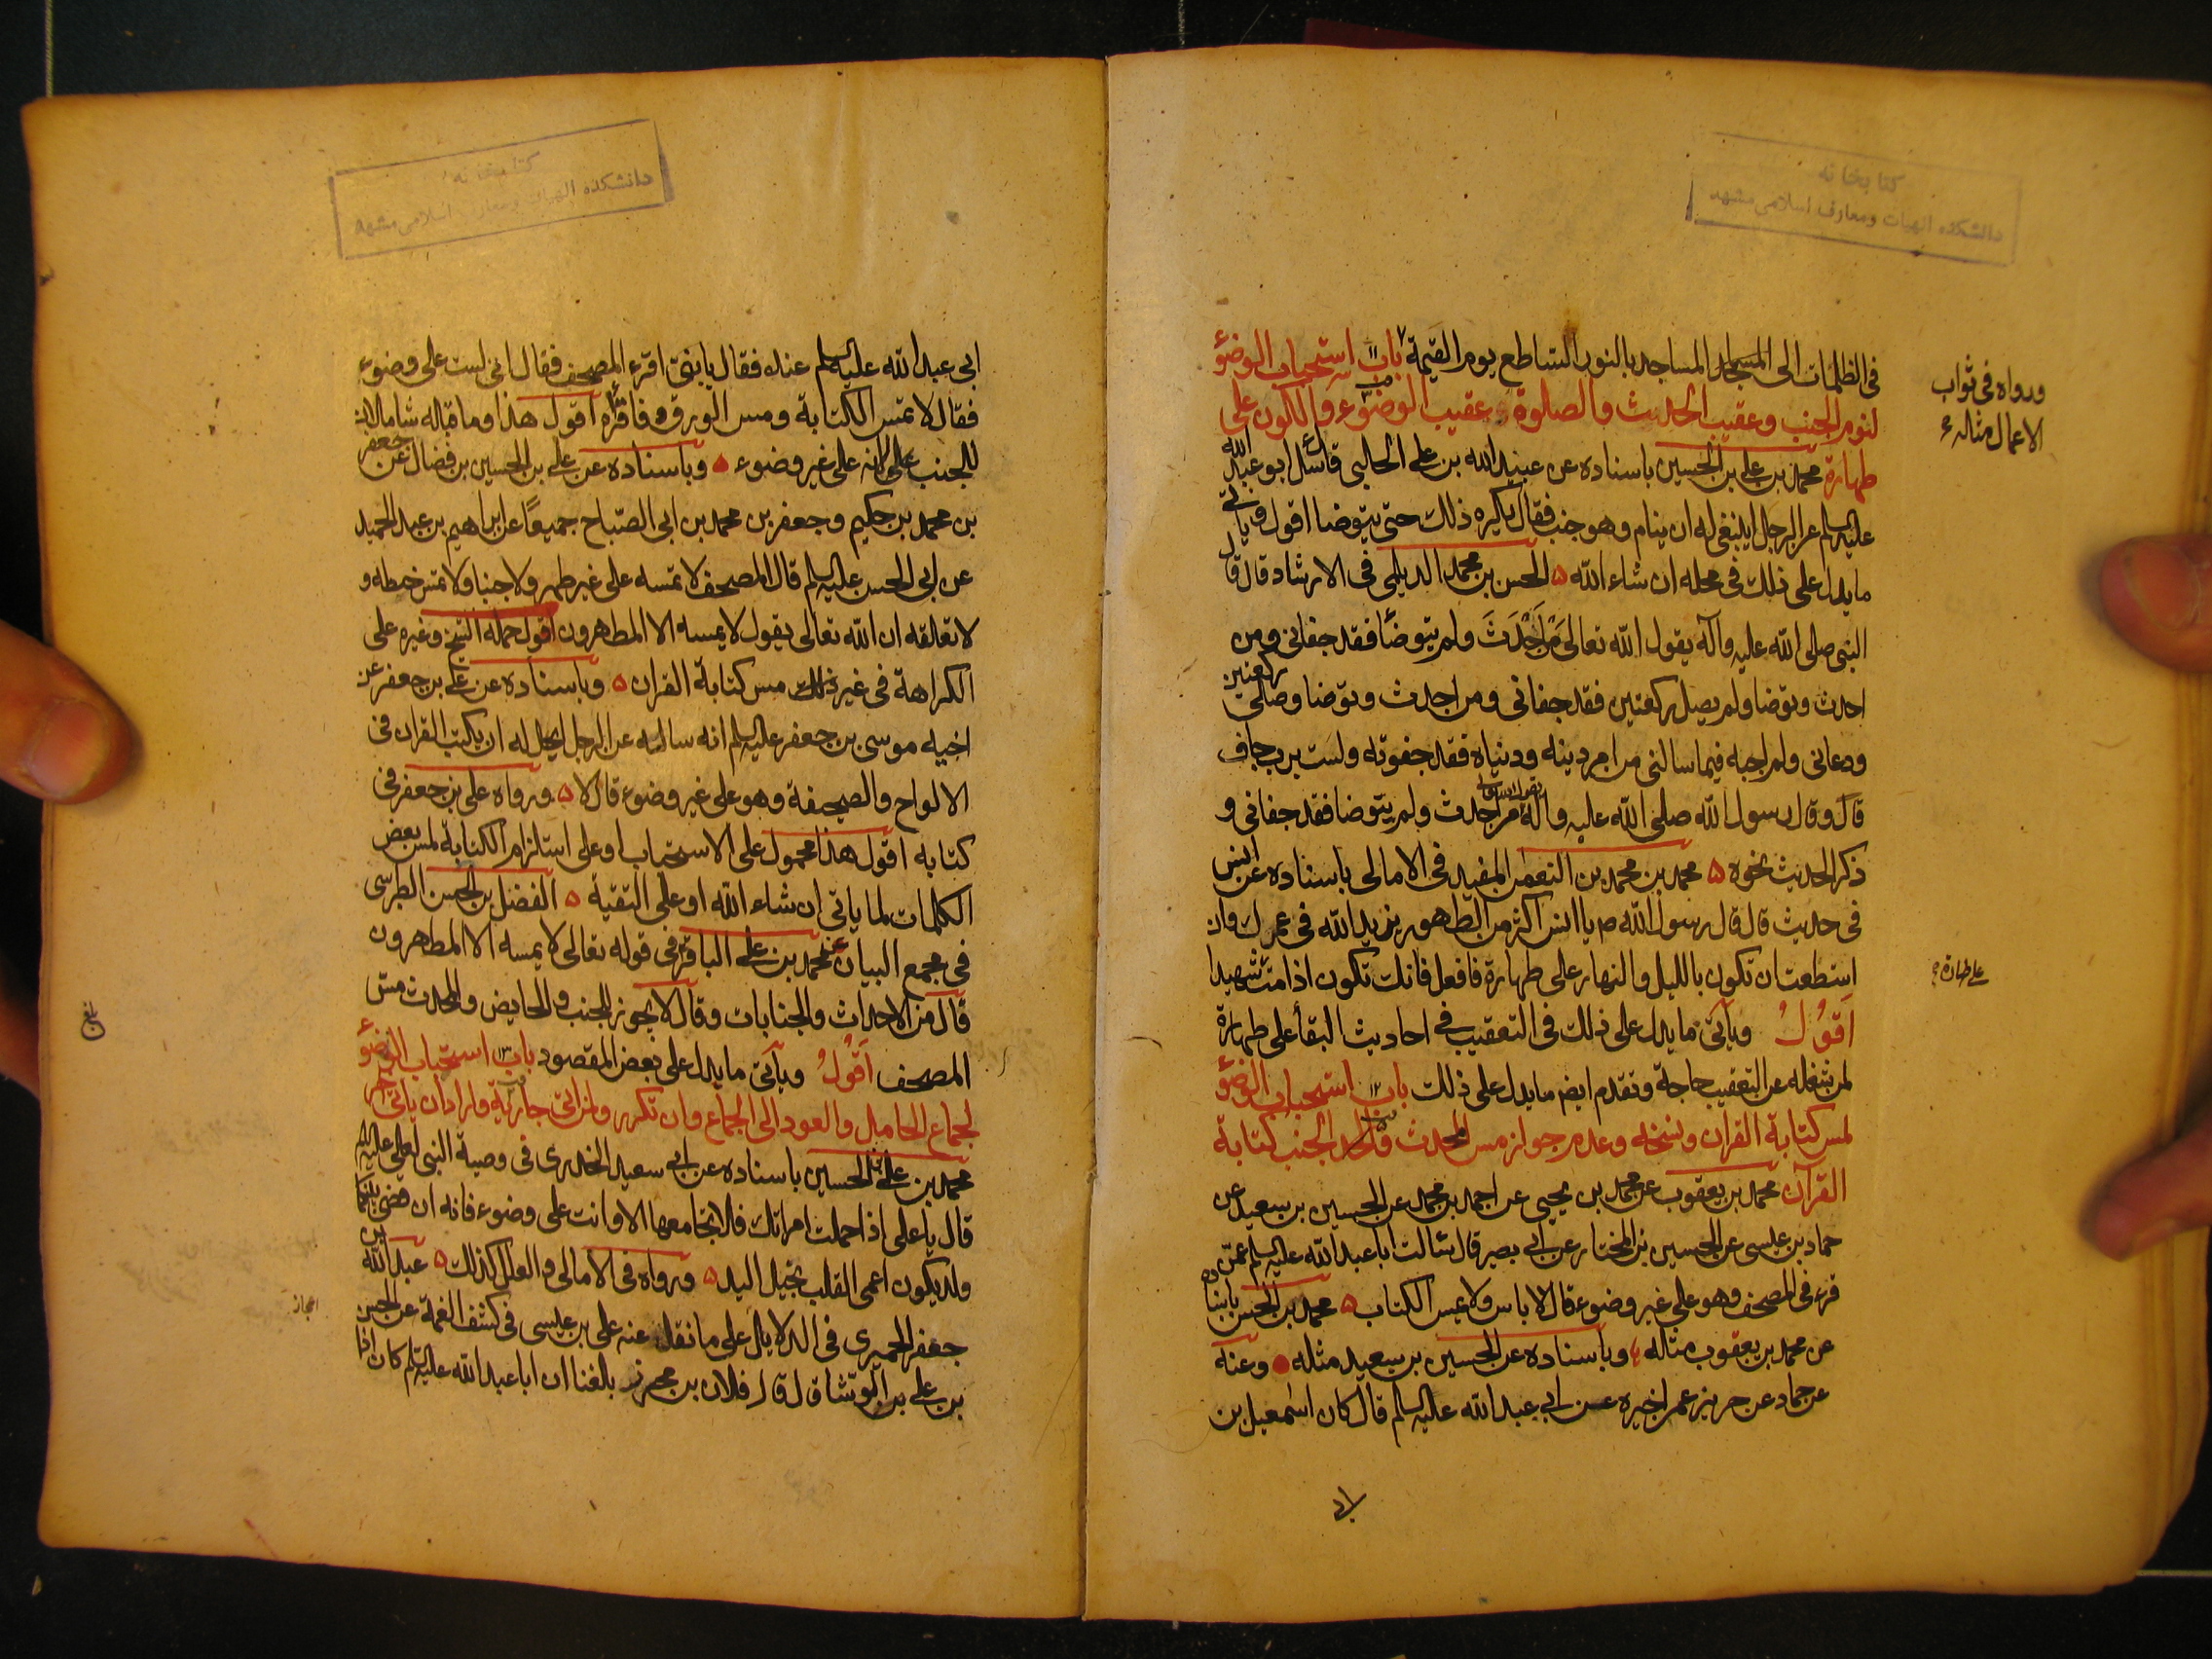 كتابخانه
دانشكده الهيات ومعارف اسلامى مشهد
فى الظلمات الى المساجد بالنور الساطع يوم القيمة باب استحباب الوضوء
لنوم الجنب وعقيب الحدث والصلوة عقيب الوضوء والكون على
طهارة محمد بن على بن الحسين باسناده عن عبيد الله بن على الحلبى قال سئل ابو عبد الله
عليه السلم عن الرجل اينبغى له ان ينام وهو جنب فقال يكره ذلك حتى يتوضا اقول وياتى
ما يدل على ذلك فى محله ان شاء الله ٥ الحسن بن محمد الديلمى فى الارشاد قال قال
النبى صلى الله عليه وآله يقول الله تعالى من احدث ولم يتوضأ فقد جفانى ومن
احدث وتوضا ولم يصل ركعتين فقد جفانى ومن احدث وتوضا وصلى ركعتين
ودعانى ولم اجبه فيما سالنى من امر دينه ودنياه فقد جفوته ولست برب جاف
قال وقال رسول الله صلى الله عليه وآله من احدث ولم يتوضا فقد جفانى و
ذكر الحديث نحوه ٥ محمد بن محمد بن النعمن المفيد فى الامالى باسناده عن انس
فى حديث قال قال رسول الله ص يا انس اكثر من الطهور يزيد الله فى عمرك وان
استطعت ان تكون بالليل والنهار على طهارة فافعل فانك تكون اذا مت شهيدا
اقول وياتى ما يدل على ذلك فى التعقيب فى احاديث البقأ على طهارة
لمن شغله عن التعقيب حاجة وتقدم ايض ما يدل على ذلك باب ١٢ استحباب الوضوء
لمس كتابة القران ونسخه وعدم جواز مس المحدث والجنب كتابة
القرآن محمد بن يعقوب عن محمد بن يحيى عن احمد بن محمد عن الحسين بن سعيد عن
حماد بن عيسى عن الحسين بن المختار عن ابى بصير قال سئالت ابا عبد الله عليه السلم عمن
قرء فى المصحف وهو على غير وضوء قال لا باس ولا يمس الكتاب ٥ محمد بن الحسن باسناده
عن محمد بن يعقوب مثله وباسناده عن الحسين بن سعيد مثله وعنه
عن حماد عن حريز عمن اخبره عن ابى عبد الله عليه السلم قال كان اسمعيل بن
ورواه فى ثواب
الاعمال مثله
على طهارة
كتابخانه
دانشكده الهيات ومعارف اسلامى مشهد
ابى عبد الله عليه السلم عنده فقال يا بنى اقرء المصحف فقال انى لست على وضوء
فقال لا تمس الكتابة ومس الورق فاقرأه اقول هذا وما قبله شاملان
للجنب لانه على غير وضوء ٥ وباسناده عن على بن الحسين بن فضال عن جعفر
بن محمد بن حكيم وجعفر بن محمد بن ابى الصباح جميعًا عن ابراهيم بن عبد الحميد
عن ابى الحسن عليه السلم قال المصحف لا تمسه على غير طهر ولا جنبا ولا تمس خطه و
لا تعلقه ان الله تعالى يقول لا يمسه الا المطهرون اقول حمله الشيخ وغيره على
الكراهة فى غير مس كتابة القران ٥ وباسناده عن على بن جعفر عن
اخيه موسى بن جعفر عليه السلم انه ساله عن الرجل ايحل له ان يكتب القران فى
الالواح والصحيفة وهو على غير وضوء قال لا ٥ ورواه على بن جعفر فى
كتابه اقول هذا محمول على الاستحباب او على استلزام الكتابة لمس بعض
الكلمات لما ياتى ان شاء الله او على التقية ٥ الفضل بن الحسن الطبرسى
فى مجمع البيان عن محمد بن على الباقر فى قوله تعالى لا يمسه الا المطهرون
قال من الاحداث والجنابات وقال لا يجوز للجنب والحايض والمحدث مس
المصحف اقول وياتى ما يدل على بعض المقصود باب ١٣ استحباب الوضوء
لجماع الحامل والعود الى الجماع وان تكرر ولمن اتى جارية واراد ان ياتى اخرى
محمد بن على بن الحسين باسناده عن ابى سعيد الخدرى فى وصية النبى لعلى عليه السلم
قال يا على اذا حملت امراتك فلا تجامعها الا وانت على وضوء فانه ان قضى بينكما
ولد يكون اعمى القلب بخيل اليد ٥ ورواه فى الامالى والعلل كذلك ٥ عبد الله بن
جعفر الحميرى فى الدلايل على ما نقله عنه على بن عيسى فى كشف الغمة عن الحسن
بن على بن الوشا قال قال فلان بن محرز بلغنا ان ابا عبد الله عليه السلم كان اذا